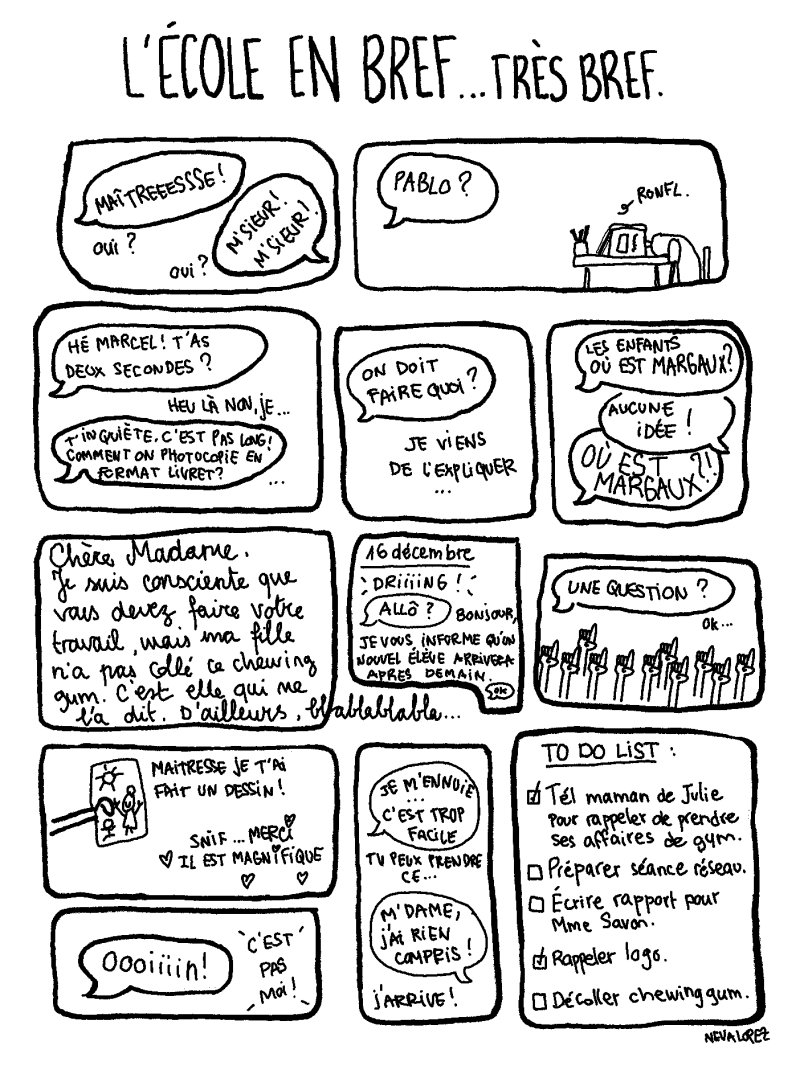 L'ÉCOLE EN BREF...TRÈS BREF.
MAÎTREEESSSE!
oui ?
M'SIEUR!
M'SIEUR!
oui ?
PABLO ?
RONFL.
HÉ MARCEL! T'AS
DEUX SECONDES ?
HEU LÀ NON, JE...
T'INQUIÈTE, C'EST PAS LONG!
COMMENT ON PHOTOCOPIE EN
FORMAT LIVRET?
...
ON DOIT
FAIRE QUOI ?
JE VIENS
DE L'EXPLIQUER
...
LES ENFANTS
OÙ EST MARGAUX?
AUCUNE
IDÉE !
OÙ EST
MARGAUX?!
Chère Madame.
Je suis consciente que
vous devez faire votre
travail, mais ma fille
n'a pas collé ce chewing
gum. C'est elle qui me
l'a dit. D'ailleurs, blablablabla...
16 décembre
DRIIIING !
ALLÔ ?
BONJOUR,
JE VOUS INFORME QU'UN
NOUVEL ÉLÈVE ARRIVERA
APRES DEMAIN.
OK
UNE QUESTION ?
OK...
MAITRESSE JE T'AI
FAIT UN DESSIN!
SNIF... MERCI
IL EST MAGNIFIQUE
JE M'ENNUIE
...
C'EST TROP
FACILE
TU PEUX PRENDRE
CE...
M'DAME,
J'AI RIEN
COMPRIS !
J'ARRIVE!
TO DO LIST :
Tél maman de Julie
pour rappeler de prendre
ses affaires de gym.
Préparer séance réseau.
Écrire rapport pour
Mme Savon.
Rappeler logo.
Décoller chewing gum.
Oooiiiin!
C'EST
PAS
MOI!
NEVA LOREZ